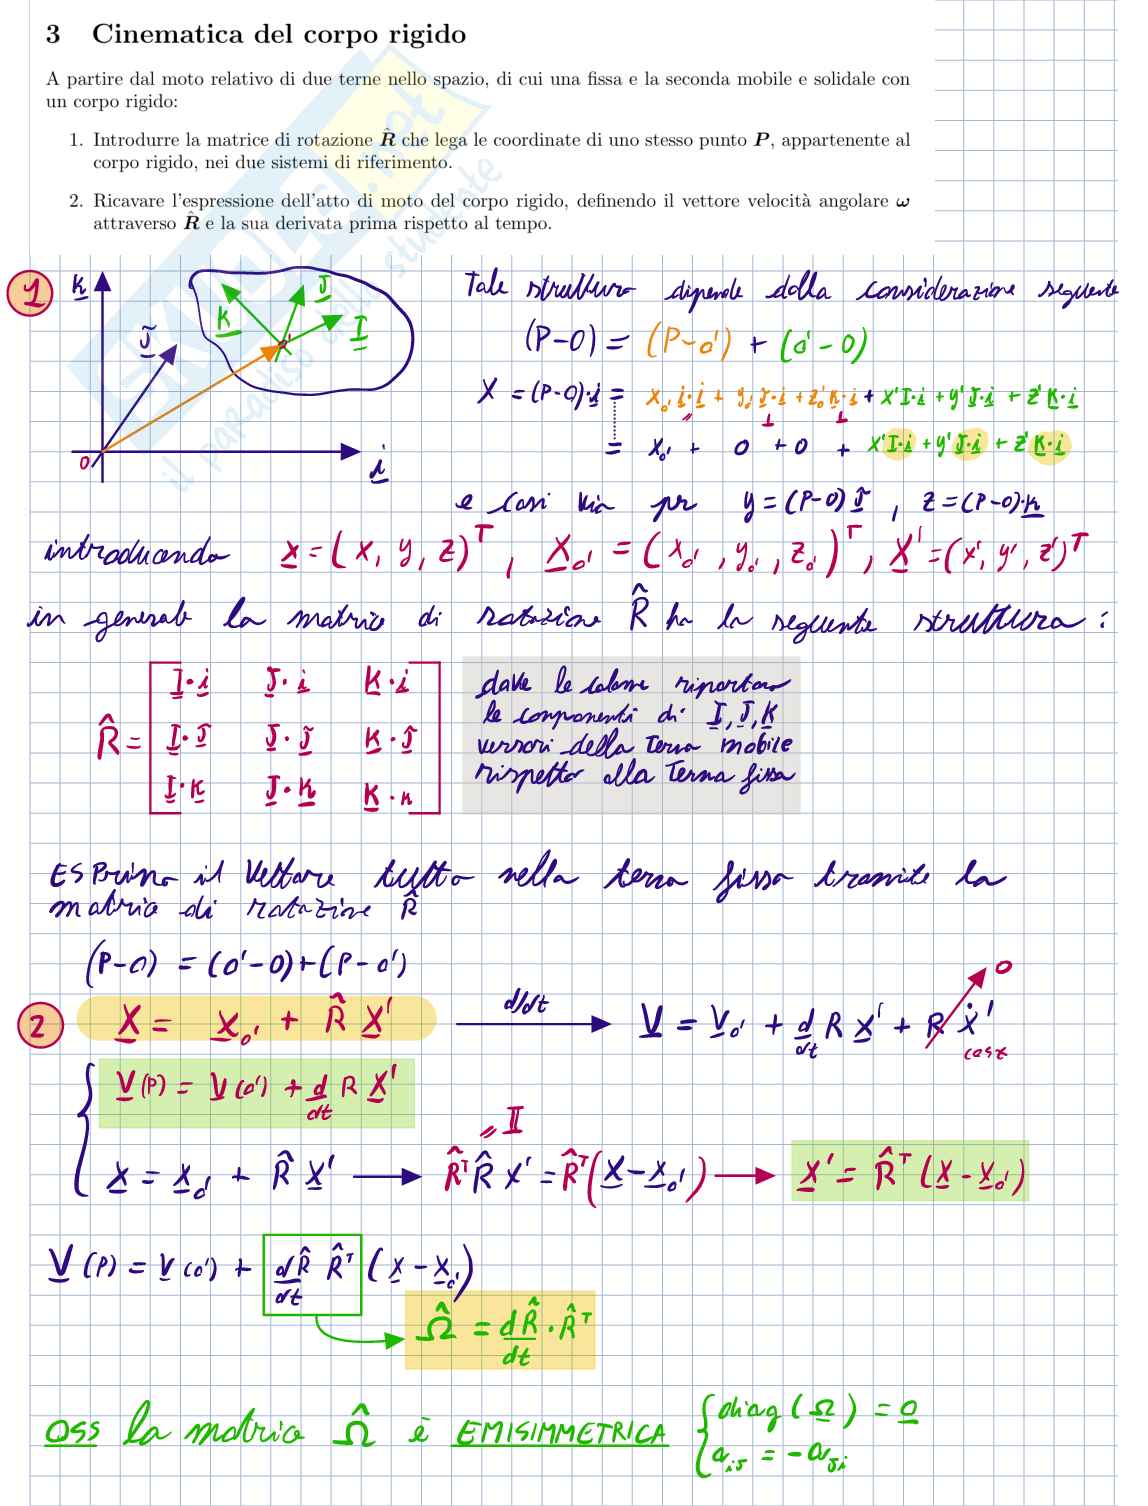 3 Cinematica del corpo rigido
A partire dal moto relativo di due terne nello spazio, di cui una fissa e la seconda mobile e solidale con
un corpo rigido:
1. Introdurre la matrice di rotazione R̂ che lega le coordinate di uno stesso punto P, appartenente al
corpo rigido, nei due sistemi di riferimento.
2. Ricavare l'espressione dell'atto di moto del corpo rigido, definendo il vettore velocità angolare ω
attraverso R̂ e la sua derivata prima rispetto al tempo.
1
k
J
K
J
I
o'
O
i
Tale struttura dipende dalla considerazione seguente
(P-O) = (P-o') + (o'-O)
X = (P-O)·i = x₀' i·i + y₀' j·i + z₀' k·i + x' I·i + y' J·i + z' K·i
= x₀' + 0 + 0 + x' I·i + y' J·i + z' K·i
e così via per y = (P-O) J , z = (P-O)·k
introducendo x = (x, y, z)ᵀ , X₀' = (x₀', y₀', z₀')ᵀ , X' = (x', y', z')ᵀ
in generale la matrice di rotazione R̂ ha la seguente struttura :
R̂ =
I·i J·i K·i
I·J J·J K·J
I·k J·k K·k
dove le colonne riportano
le componenti di I, J, K
versori della terna mobile
rispetto alla terna fissa
ESPrimo il Vettore tutto nella terna fissa tramite la
matrice di rotazione R̂
(P-O) = (o'-O) + (P-o')
2
X = X₀' + R̂ X'
d/dt
V = V₀' + d/dt R X' + R Ẋ'
0
cost
V(P) = V(o') + d/dt R X'
X = X₀' + R̂ X'
= II
R̂ᵀ R̂ X' = R̂ᵀ (X - X₀')
X' = R̂ᵀ (X - X₀')
V(P) = V(o') + dR̂/dt R̂ᵀ (X - X₀')
Ω̂ = dR̂/dt · R̂ᵀ
OSS la matrice Ω̂ è EMISIMMETRICA
diag(Ω) = 0
aᵢⱼ = -aⱼᵢ
SKUOLA.net
il paradiso dello studente